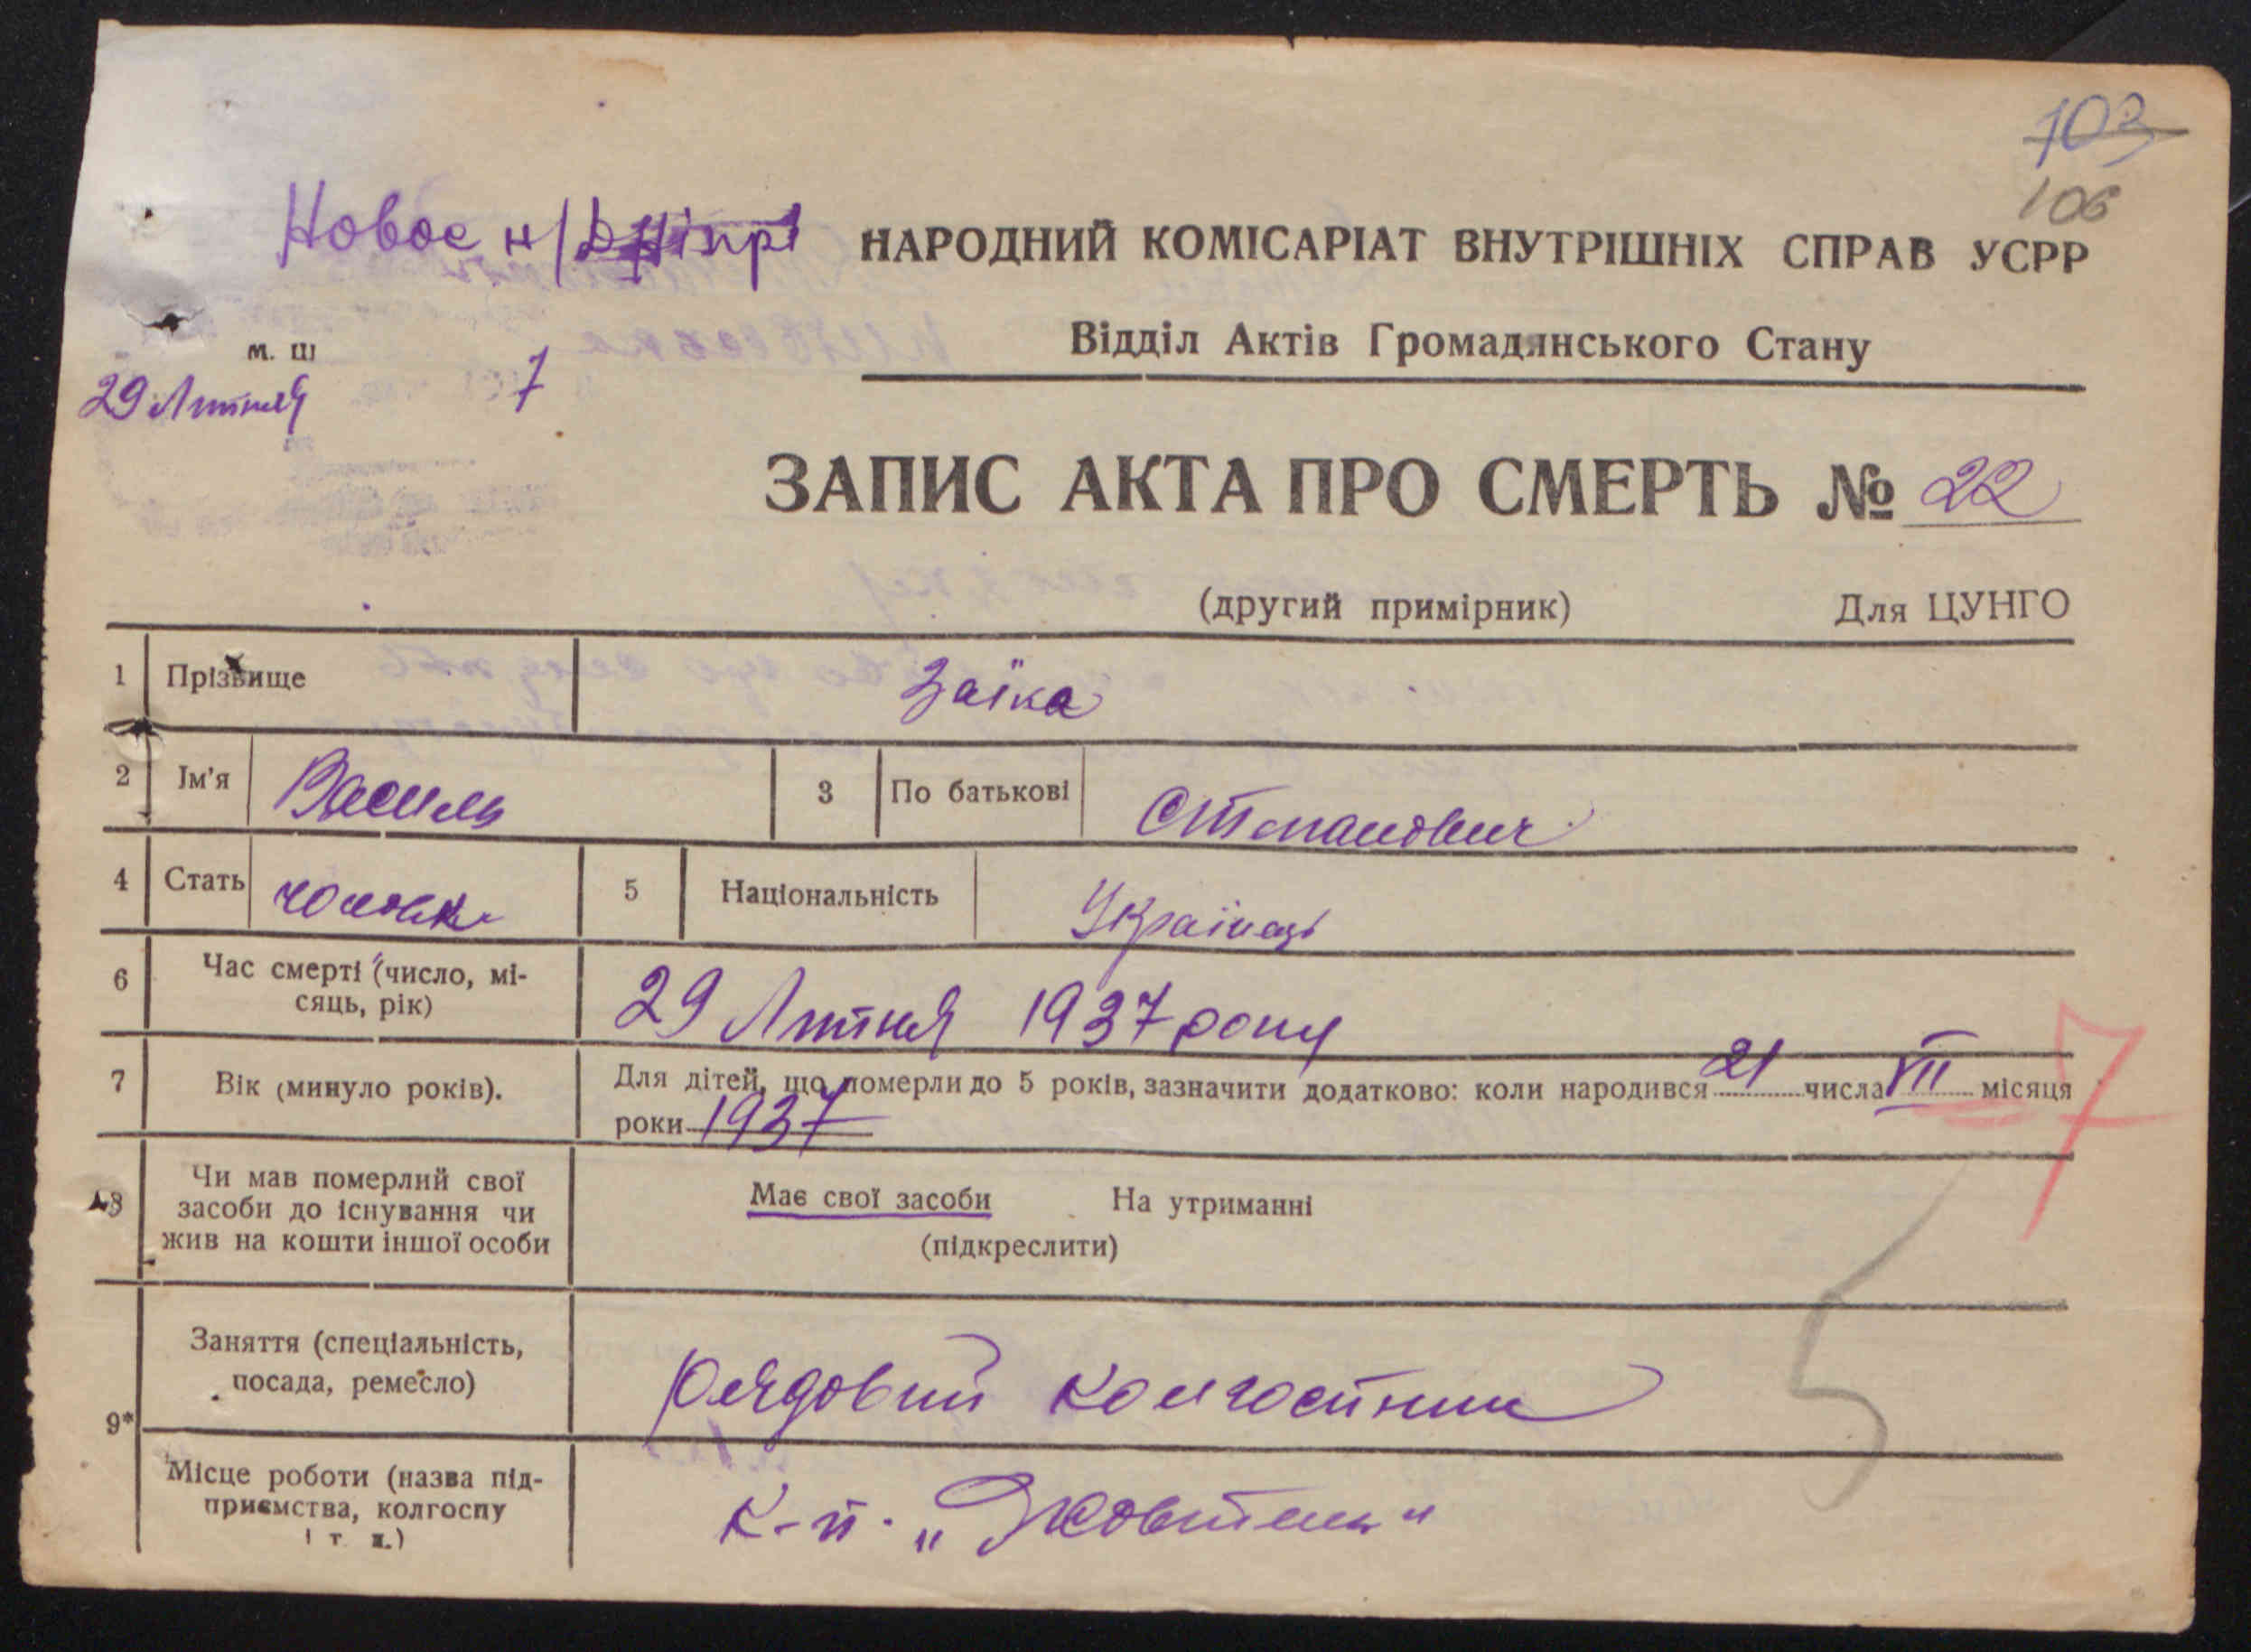 103
106
Новое н/Дніпрі НАРОДНИЙ КОМІСАРІАТ ВНУТРІШНІХ СПРАВ УСРР
Відділ Актів Громадянського Стану
м. Ш
29 Липня 7
ЗАПИС АКТА ПРО СМЕРТЬ № 22
(другий примірник) Для ЦУНГО
1 Прізвище Заїка
2 Ім'я Василь 3 По батькові Степанович
4 Стать чоловік 5 Національність Українець
6 Час смерті (число, мі-
сяць, рік) 29 Липня 1937 року
7 Вік (минуло років). Для дітей, що померли до 5 років, зазначити додатково: коли народився 21 числа VII місяця
роки 1937
7
8 Чи мав померлий свої
засоби до існування чи
жив на кошти іншої особи
Має свої засоби На утриманні
(підкреслити)
5
9* Заняття (спеціальність,
посада, ремесло) Рядовий колгоспник
Місце роботи (назва під-
приємства, колгоспу
і т. п.) к-п. „Жовтень"